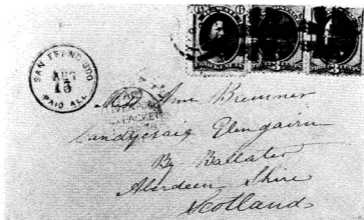 SAN FRANCISCO
AUG
15
PAID ALL
PACKET
Miss Ann Bremner
Candycraig Glengairn
By Ballater
Aberdeen Shire
Scotland